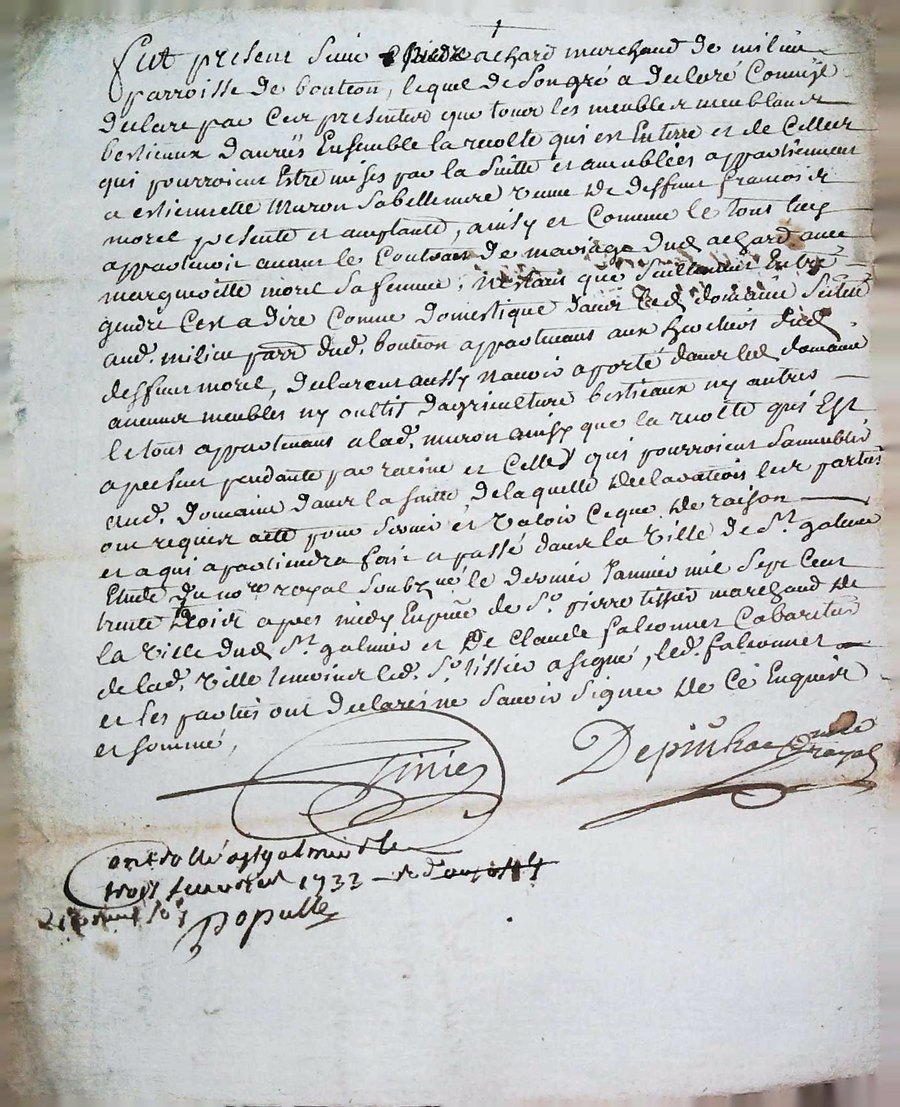 Fut present Sieur achard marchand de milieu
parroisse de boution, lequel de Son gré a declaré Comme Il
declare par Ces presentes que tous les meubles meublans
bestieaux danrées Ensemble la recolte qui est En terre et de Celles
qui pourroient Estre mises par la Suitte et ameublées appartiennent
a estiennette Muron Sa bellemere veuve de deffunt francois
morel presente et acceptante, ainsy et Comme le tous luy
appartenoit avant le Contract de mariage dud. achard avec
margueritte morel Sa femme, nestans que Entré
gendre C'est a dire Comme domestique dans led. domaine Scitué
aud. milieu parr. dud. boution appartenans aux heritiers dud.
deffunt morel, declarent aussy navoir aporté dans led. domaine
aucuns meubles ny outtis dagriculture bestieaux ny autres
le tous appartenans a lad. muron ainsy que la recolte qui Est
apresent pendante par racine et Celles qui pourroient Sameublir
aud. domaine dans la Suitte delaquelle declaration les parties
ont requis acte pour Servir et valoir Ceque de raison
et a qui apartiendra fait et passé dans la ville de St. galmier
Etude du nore. royal Soubzné. le dernier Janvier mil Sept Cent
trente trois apres midy En pnce. de Sr. pierre tissier marchand de
la ville dud. St. galmier et de Claude falconnet Cabaretier
de lad. ville temoins led. Sr. tissier a signé, led. falconnet
et les parties ont declaré ne Savoir Signer de Ce Enquis
et sommé,
royal
Controllé a St galmier le
trois fevrier 1733
Populle